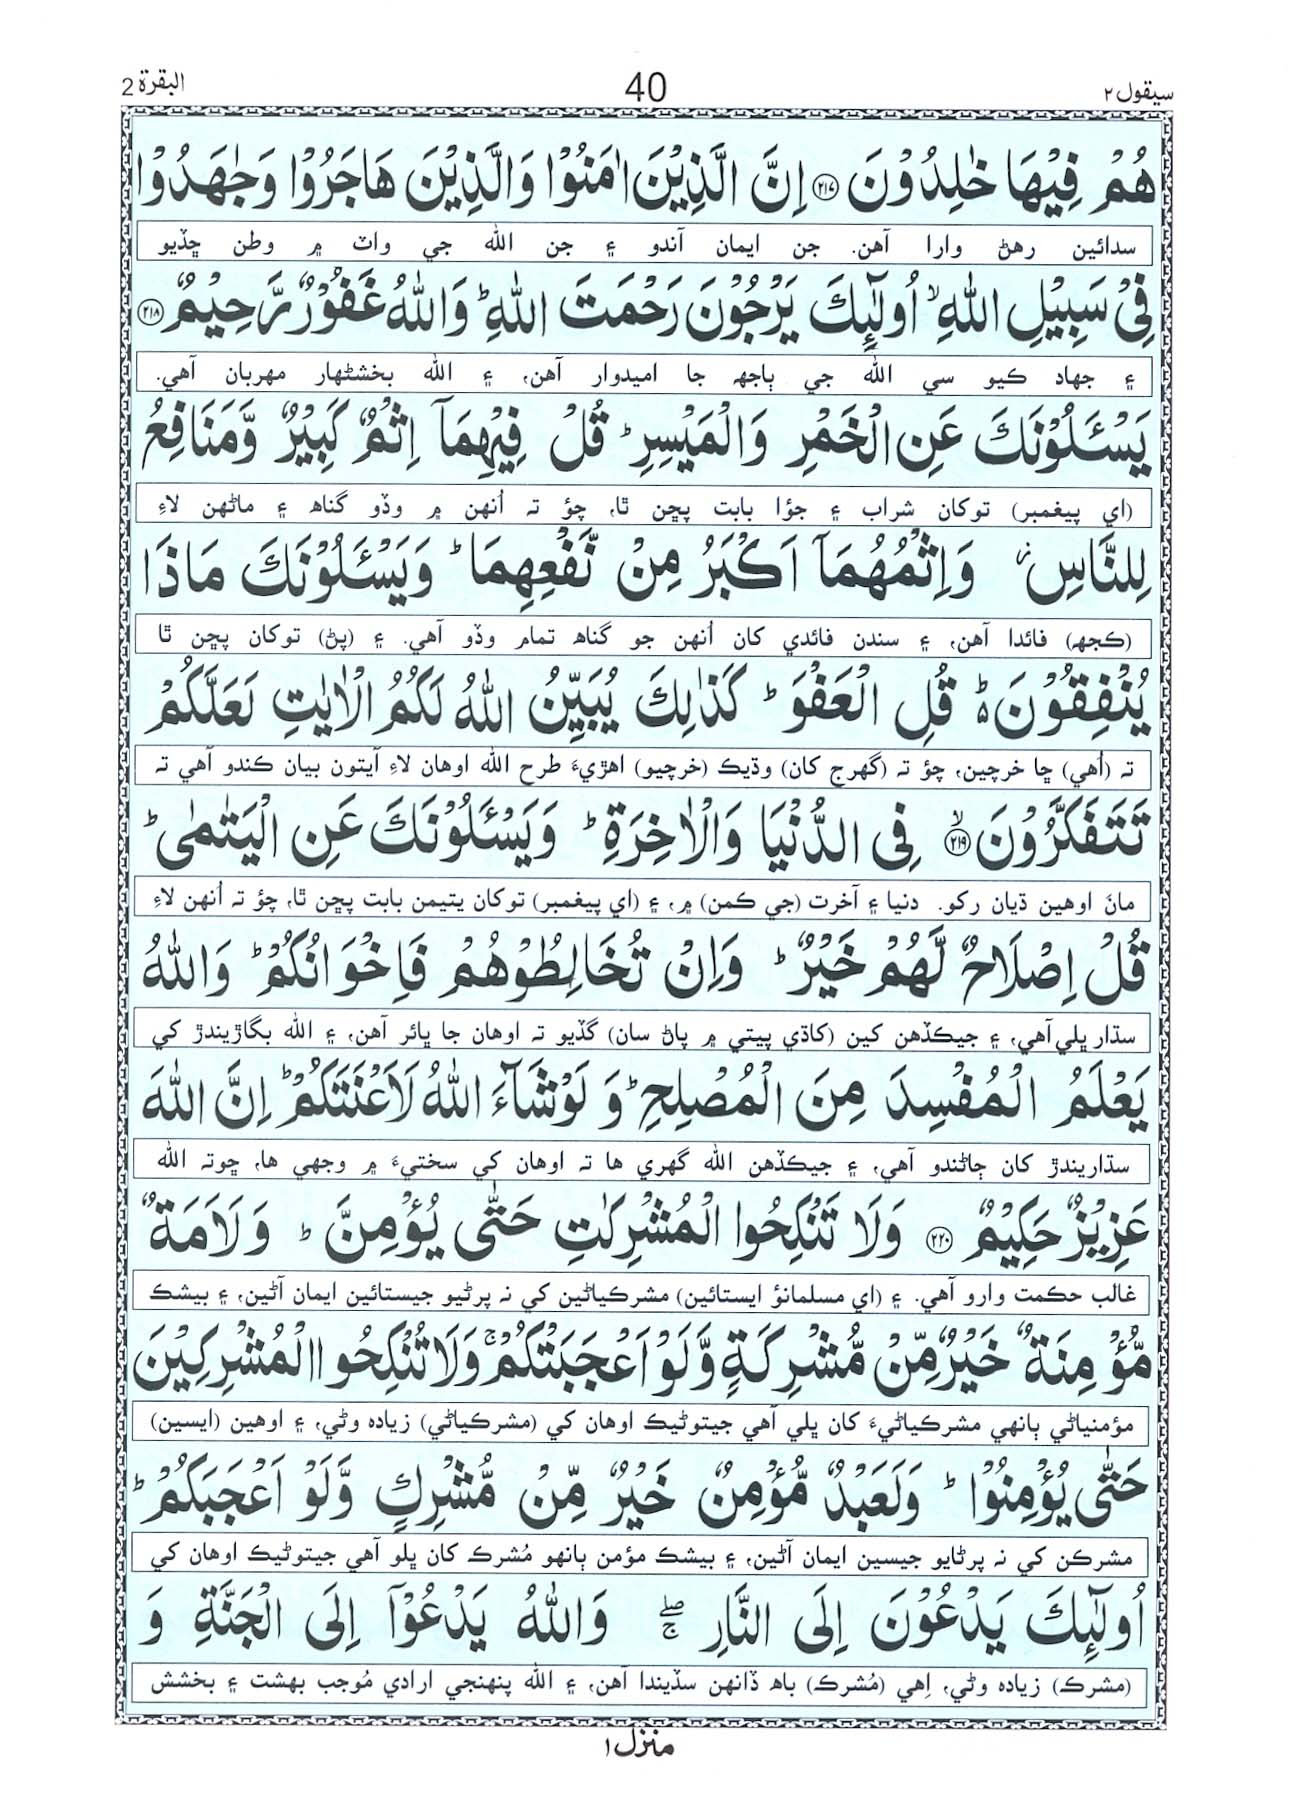 سيقول ٢
40
البقرة 2
هُمْ فِيْهَا خٰلِدُوْنَ ﴿٢١٧﴾ اِنَّ الَّذِيْنَ اٰمَنُوْا وَالَّذِيْنَ هَاجَرُوْا وَجٰهَدُوْا
سدائين رهڻ وارا آهن. جن ايمان آندو ۽ جن الله جي واٽ ۾ وطن ڇڏيو
فِىْ سَبِيْلِ اللّٰهِ ۙ اُولٰٓئِكَ يَرْجُوْنَ رَحْمَتَ اللّٰهِ ؕ وَاللّٰهُ غَفُوْرٌ رَّحِيْمٌ ﴿٢١٨﴾
۽ جهاد ڪيو سي الله جي ٻاجهہ جا اميدوار آهن، ۽ الله بخشڻهار مهربان آهي.
يَسْـَٔلُوْنَكَ عَنِ الْخَمْرِ وَالْمَيْسِرِ ؕ قُلْ فِيْهِمَآ اِثْمٌ كَبِيْرٌ وَّمَنَافِعُ
(اي پيغمبر) توکان شراب ۽ جؤا بابت پڇن ٿا، چؤ تہ اُنهن ۾ وڏو گناھ ۽ ماڻهن لاءِ
لِلنَّاسِ ز وَاِثْمُهُمَآ اَكْبَرُ مِنْ نَّفْعِهِمَا ؕ وَيَسْـَٔلُوْنَكَ مَاذَا
(ڪجهہ) فائدا آهن، ۽ سندن فائدي کان اُنهن جو گناھ تمام وڏو آهي. ۽ (پڻ) توکان پڇن ٿا
يُنْفِقُوْنَ ؕ۬ قُلِ الْعَفْوَ ؕ كَذٰلِكَ يُبَيِّنُ اللّٰهُ لَكُمُ الْاٰيٰتِ لَعَلَّكُمْ
تہ (اُهي) ڇا خرچين، چؤ تہ (گهرج کان) وڌيڪ (خرچيو) اهڙيءَ طرح الله اوهان لاءِ آيتون بيان ڪندو آهي تہ
تَتَفَكَّرُوْنَ ﴿٢١٩﴾ ۙ فِى الدُّنْيَا وَالْاٰخِرَةِ ؕ وَيَسْـَٔلُوْنَكَ عَنِ الْيَتٰمٰى ؕ
مانَ اوهين ڌيان رکو. دنيا ۽ آخرت (جي ڪمن) ۾، ۽ (اي پيغمبر) توکان يتيمن بابت پڇن ٿا، چؤ تہ اُنهن لاءِ
قُلْ اِصْلَاحٌ لَّهُمْ خَيْرٌ ؕ وَاِنْ تُخَالِطُوْهُمْ فَاِخْوَانُكُمْ ؕ وَاللّٰهُ
سڌار ڀلي آهي، ۽ جيڪڏهن کين (کاڌي پيتي ۾ پاڻ سان) گڏيو تہ اوهان جا ڀائر آهن، ۽ الله بگاڙيندڙ کي
يَعْلَمُ الْمُفْسِدَ مِنَ الْمُصْلِحِ ؕ وَ لَوْ شَآءَ اللّٰهُ لَاَعْنَتَكُمْ ؕ اِنَّ اللّٰهَ
سڌاريندڙ کان ڄاڻندو آهي، ۽ جيڪڏهن الله گهري ها تہ اوهان کي سختيءَ ۾ وجهي ها، ڇوتہ الله
عَزِيْزٌ حَكِيْمٌ ﴿٢٢٠﴾ وَلَا تَنْكِحُوا الْمُشْرِكٰتِ حَتّٰى يُؤْمِنَّ ؕ وَلَاَمَةٌ
غالب حڪمت وارو آهي. ۽ (اي مسلمانؤ ايستائين) مشرڪياڻين کي نہ پرڻيو جيستائين ايمان آڻين، ۽ بيشڪ
مُّؤْمِنَةٌ خَيْرٌ مِّنْ مُّشْرِكَةٍ وَّلَوْ اَعْجَبَتْكُمْ ۚ وَلَا تُنْكِحُوا الْمُشْرِكِيْنَ
مؤمنياڻي ٻانهي مشرڪياڻيءَ کان ڀلي آهي جيتوڻيڪ اوهان کي (مشرڪياڻي) زيادہ وڻي، ۽ اوهين (ايسين)
حَتّٰى يُؤْمِنُوْا ؕ وَلَعَبْدٌ مُّؤْمِنٌ خَيْرٌ مِّنْ مُّشْرِكٍ وَّلَوْ اَعْجَبَكُمْ ؕ
مشرڪن کي نہ پرڻايو جيسين ايمان آڻين، ۽ بيشڪ مؤمن ٻانهو مُشرڪ کان ڀلو آهي جيتوڻيڪ اوهان کي
اُولٰٓئِكَ يَدْعُوْنَ اِلَى النَّارِ ۖۚ وَاللّٰهُ يَدْعُوْٓا اِلَى الْجَنَّةِ وَ
(مشرڪ) زيادہ وڻي، اِهي (مُشرڪ) باھ ڏانهن سڏيندا آهن، ۽ الله پنهنجي ارادي مُوجب بهشت ۽ بخشش
منزل ١